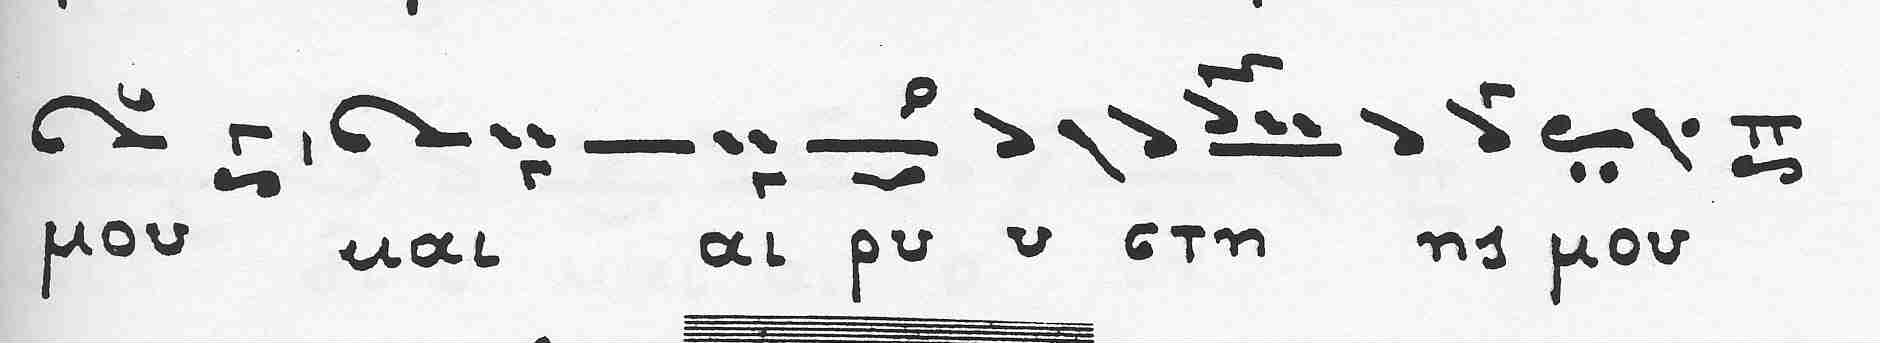 μου και αι ρυ υ στη ης μου